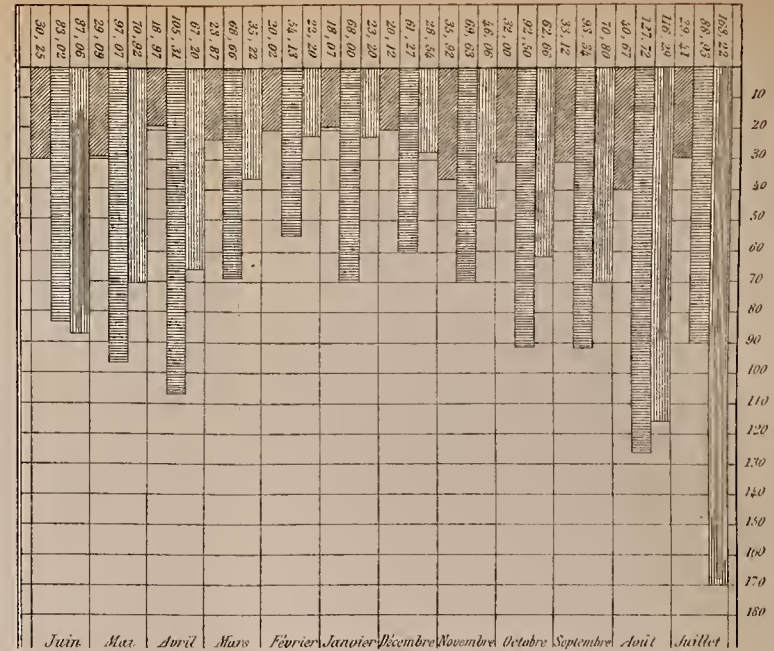 30, 25
83, 02
87, 06
29, 09
97, 07
70, 92
18, 97
105, 31
67, 20
23, 87
68, 66
35, 22
20, 02
54, 13
22, 20
18, 07
68, 00
23, 20
20, 12
61, 27
28, 54
35, 92
69, 63
46, 00
32, 00
92, 50
62, 86
33, 12
93, 34
70, 80
40, 67
127, 72
116, 29
29, 47
88, 95
168, 22
10
20
30
40
50
60
70
80
90
100
110
120
130
140
150
160
170
180
Juin Mai Avril Mars Février Janvier Décembre Novembre Octobre Septembre Août Juillet